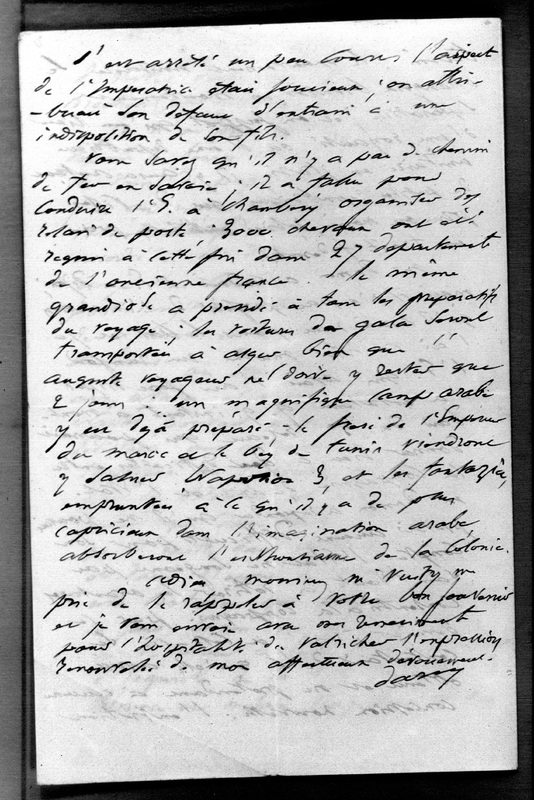 s'est arrêté un peu court. L'aspect
de l'Imperatrice était soucieux ; on attri-
-buait son défaut d'entrain à une
indisposition de son fils.
Vous savez qu'il n'y a pas de chemin
de fer en Savoie ; il a fallu pour
conduire l'E. à Chambery organiser des
relais de poste ; 3000 chevaux ont été
requis à cette fin dans 27 departements
de l'ancienne france. le même
grandiose a présidé à tous les preparatifs
du voyage ; les voitures de gala seront
transportées à alger bien que l'
auguste voyageur ne doive y rester que
2 jours ; un magnifique camp arabe
y est déjà préparé - le frere de l'Empereur
du maroc et le bey de tunis viendront
y saluer Napoléon 3, et les fantazias,
empruntées à ce qu'il y a de plus
capricieux dans l'imagination arabe,
absorberont l'enthousiasme de la Colonie.
adieu monsieur, me
prie de le rappeler à votre bon souvenir
et je vous envoie avec mes remerciements
pour l'hospitalité de l'expression
renouvelée de mon affectueux dévouement.